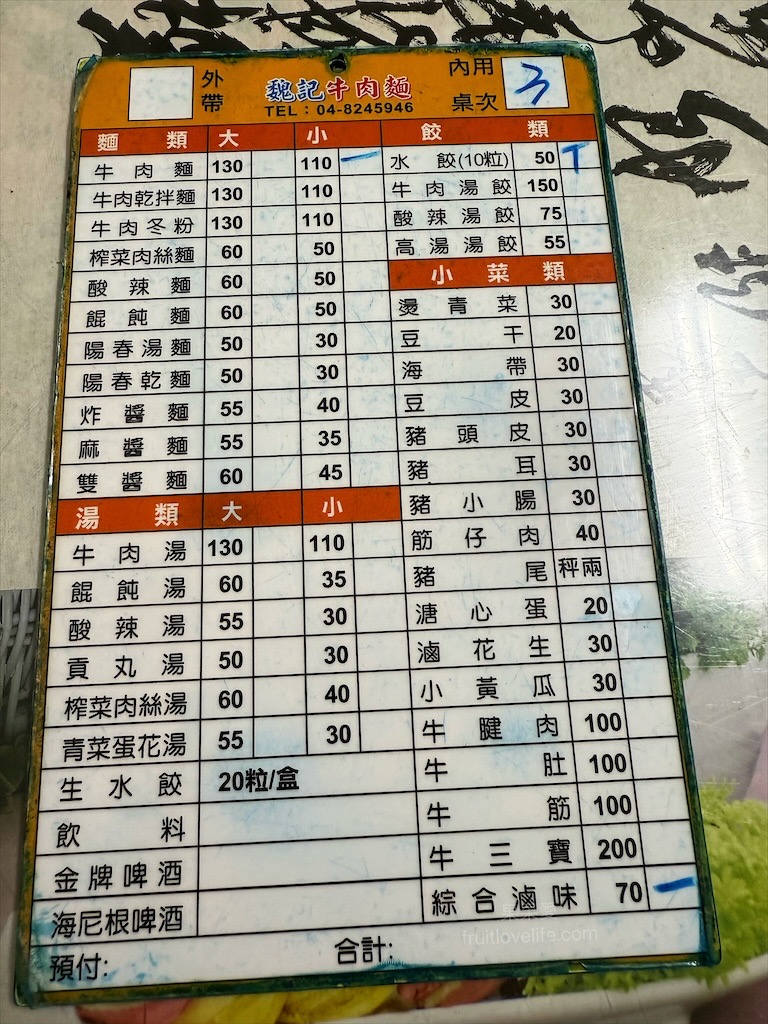 外帶 魏記牛肉麵 TEL：04-8245946 內用桌次 3
麵類 大 小
牛肉麵 130 110 一
牛肉乾拌麵 130 110
牛肉冬粉 130 110
榨菜肉絲麵 60 50
酸辣麵 60 50
餛飩麵 60 50
陽春湯麵 50 30
陽春乾麵 50 30
炸醬麵 55 40
麻醬麵 55 35
雙醬麵 60 45
湯類 大 小
牛肉湯 130 110
餛飩湯 60 35
酸辣湯 55 30
貢丸湯 50 30
榨菜肉絲湯 60 40
青菜蛋花湯 55 30
生水餃 20粒/盒
飲料
金牌啤酒
海尼根啤酒
餃類
水餃(10粒) 50 T
牛肉湯餃 150
酸辣湯餃 75
高湯湯餃 55
小菜類
燙青菜 30
豆干 20
海帶 30
豆皮 30
豬頭皮 30
豬耳 30
豬小腸 30
筋仔肉 40
豬尾 秤兩
溏心蛋 20
滷花生 30
小黃瓜 30
牛腱肉 100
牛肚 100
牛筋 100
牛三寶 200
綜合滷味 70 一
預付: 合計:
fruitlovelife.com